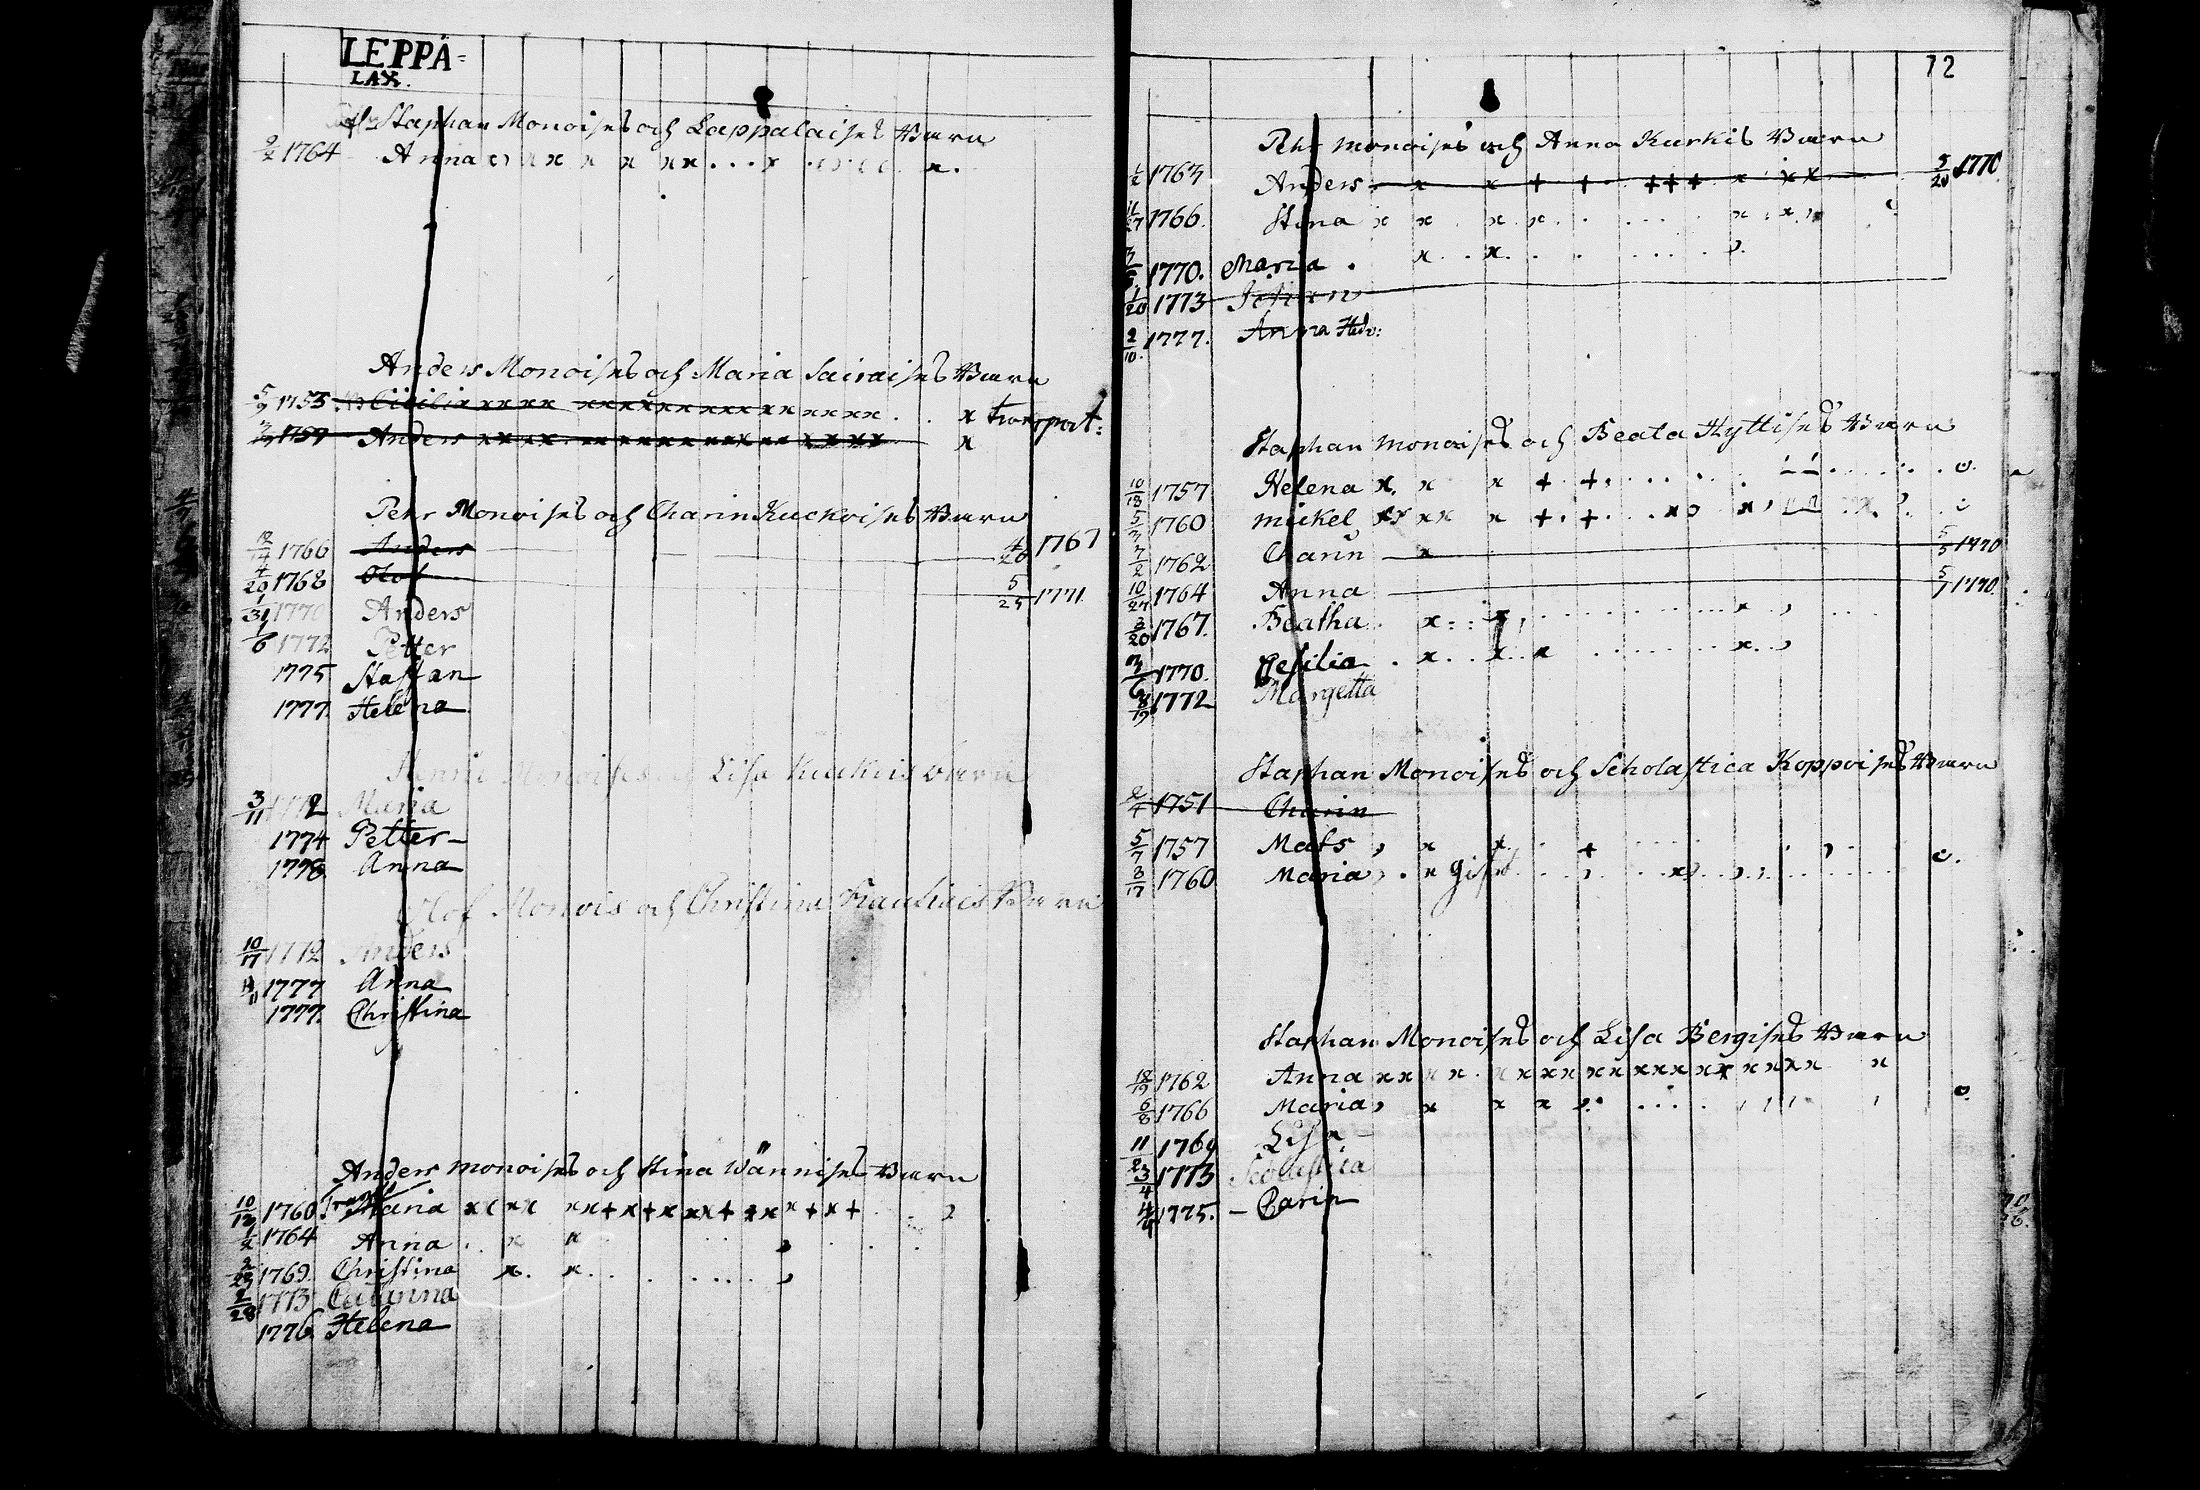 LEPPÄ=
LAX.
Staphan Monoises och Lappalaises Barn
2/2 1764 Anna x x x x x x . . . x . x.
Anders Monoises och Maria Sairaises Barn
5/9 1753 Cicilia xxxx xxxxxxxxxxxxxx . . x transport:
1757 Anders xxxx xxxxxxxxxx xxxx x
Pehr Monoises och Charin Kuckoises Barn
12/14 1766 Anders 1767
4/20 1768 Olof 5/25 1771
1/31 1770 Anders
1/6 1772 Petter
1775 Staffan
1777. Helena
Monoises och Lisa Kuckois barn
3/11 1772 Maria
1774 Petter
1776 Anna
Olof Monois och Christina Barn
10/17 1772 Anders
1777 Anna
1777. Christina
Anders Monoises och Stina Wännises Barn
10/12 1760 Transp Maria xxxx xx+x+xxx+xxx+x+
1/2 1764 Anna . x x
1769. Christina x. x. . . . . . . ,
2/28 1773 Catarina
1776. Helena
72
Pehr Monoises och Anna Kurkis Barn
1/2 1763 Anders x x + + +++ x xx 3/20 1770
11/27 1766. Stina x x x x . . . . . x . x
1770. Maria . x . x . . . . . .
1/20 1773 Johan
2/10. 1777. Anna Hedv:
Staphan Monoises och Beata Hyttises Barn
10/13 1757 Helena x. x x + +
5/3 1760 Mickel xx xx x + +
7/2 1762 Charin x 5/5 1770
10/27 1764 Anna 5/7 1770.
3/20 1767. Beatha . x . . x
3/6 1770. Cesilia . x . . x . x . . . . x . ,
8/19 1772 Margetta
Staphan Monoises och Scholastica Koppoises Barn
2/4 1751 Charin
5/7 1757 Mats , x x . . +
3/17 1760 Maria , . x gift
Staphan Monoises och Lisa Bergises Barn
12/19 1762 Anna xxxx . xxxx xx xxx xx xxxx x
6/8 1766 Maria , x x x
11/23 1769 Lisa
3/4 1773 Scolastica
1775. – Carin